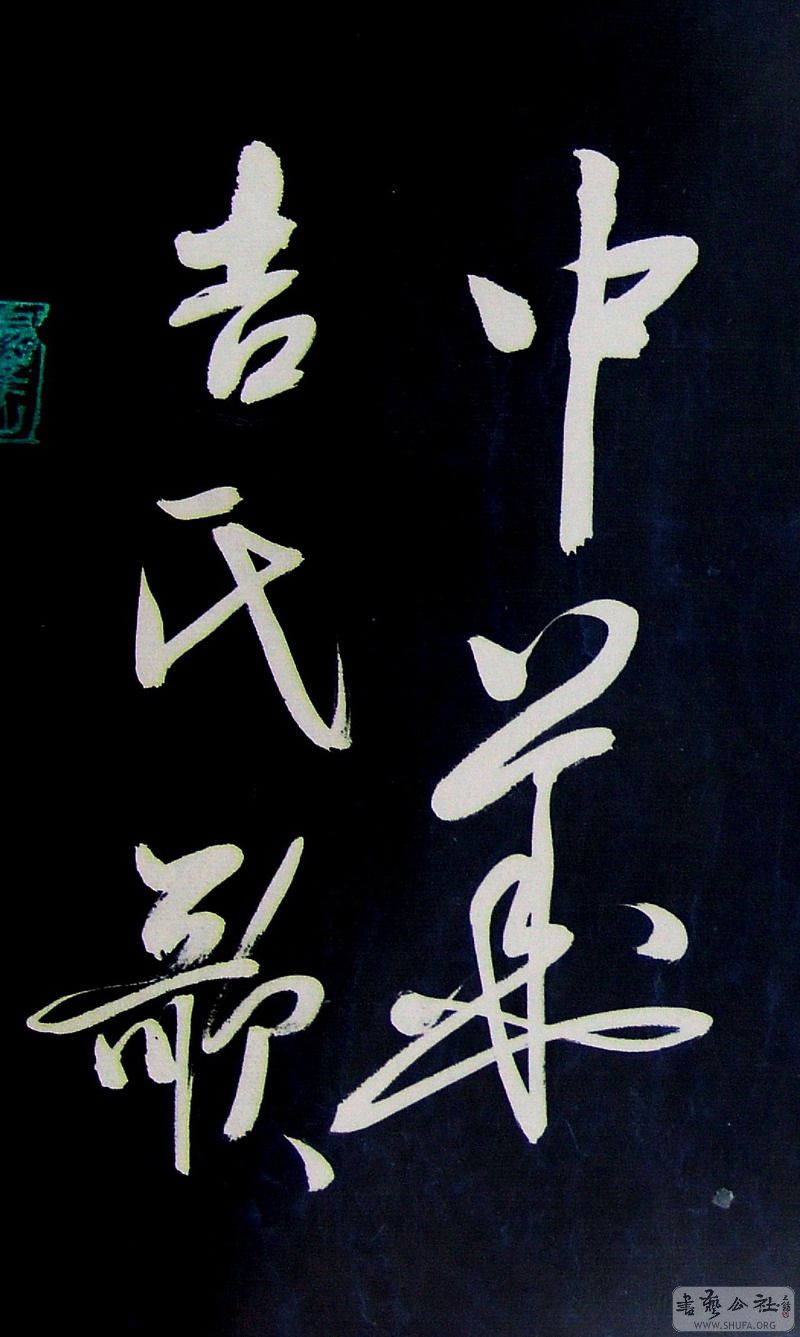 中华
吉氏歌
书艺公社
WWW.SHUFA.ORG